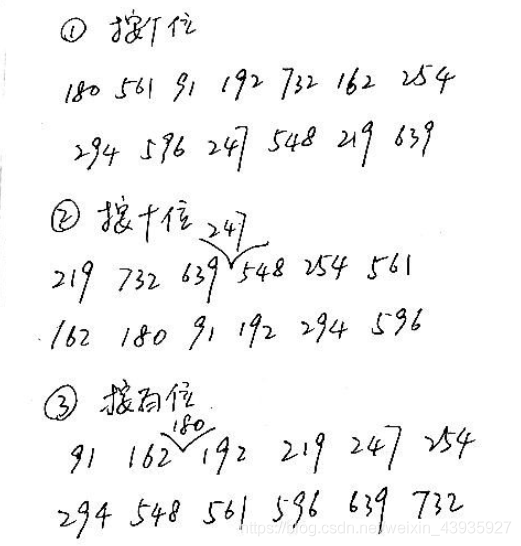 ① 按个位
180 561 91 192 732 162 254
294 596 247 548 219 639
② 按十位 247
219 732 639 548 254 561
162 180 91 192 294 596
③ 按百位
180
91 162 192 219 247 254
294 548 561 596 639 732
https://blog.csdn.net/weixin_43935927